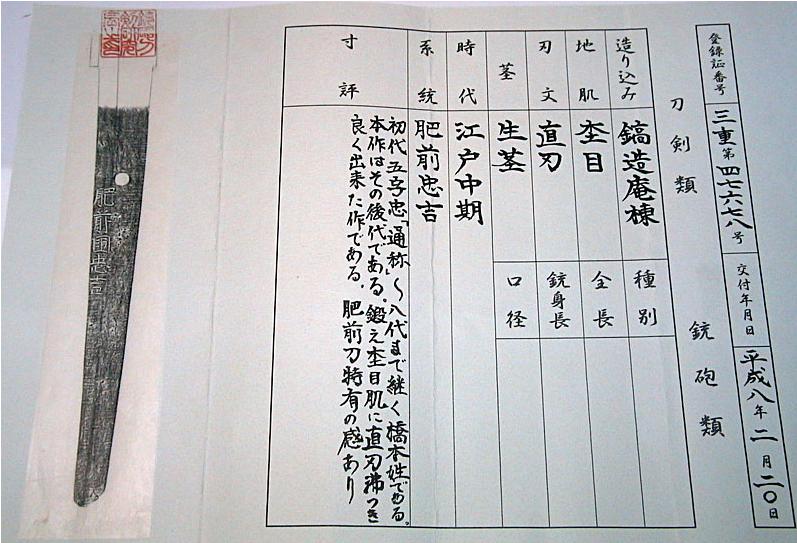 登録証番号
三重第四七六七八号
交付年月日
平成八年二月二〇日
刀剣類
銃砲類
造り込み
鎬造庵棟
種別
地肌
杢目
全長
刃文
直刃
銃身長
茎
生茎
口径
時代
江戸中期
系統
肥前忠吉
寸評
初代五字忠「通称」〜八代まで継く橋本姓である。
本作はその後代である。鍛え杢目肌に直刃沸つき
良く出来た作である。肥前刀特有の感あり
肥前國忠吉